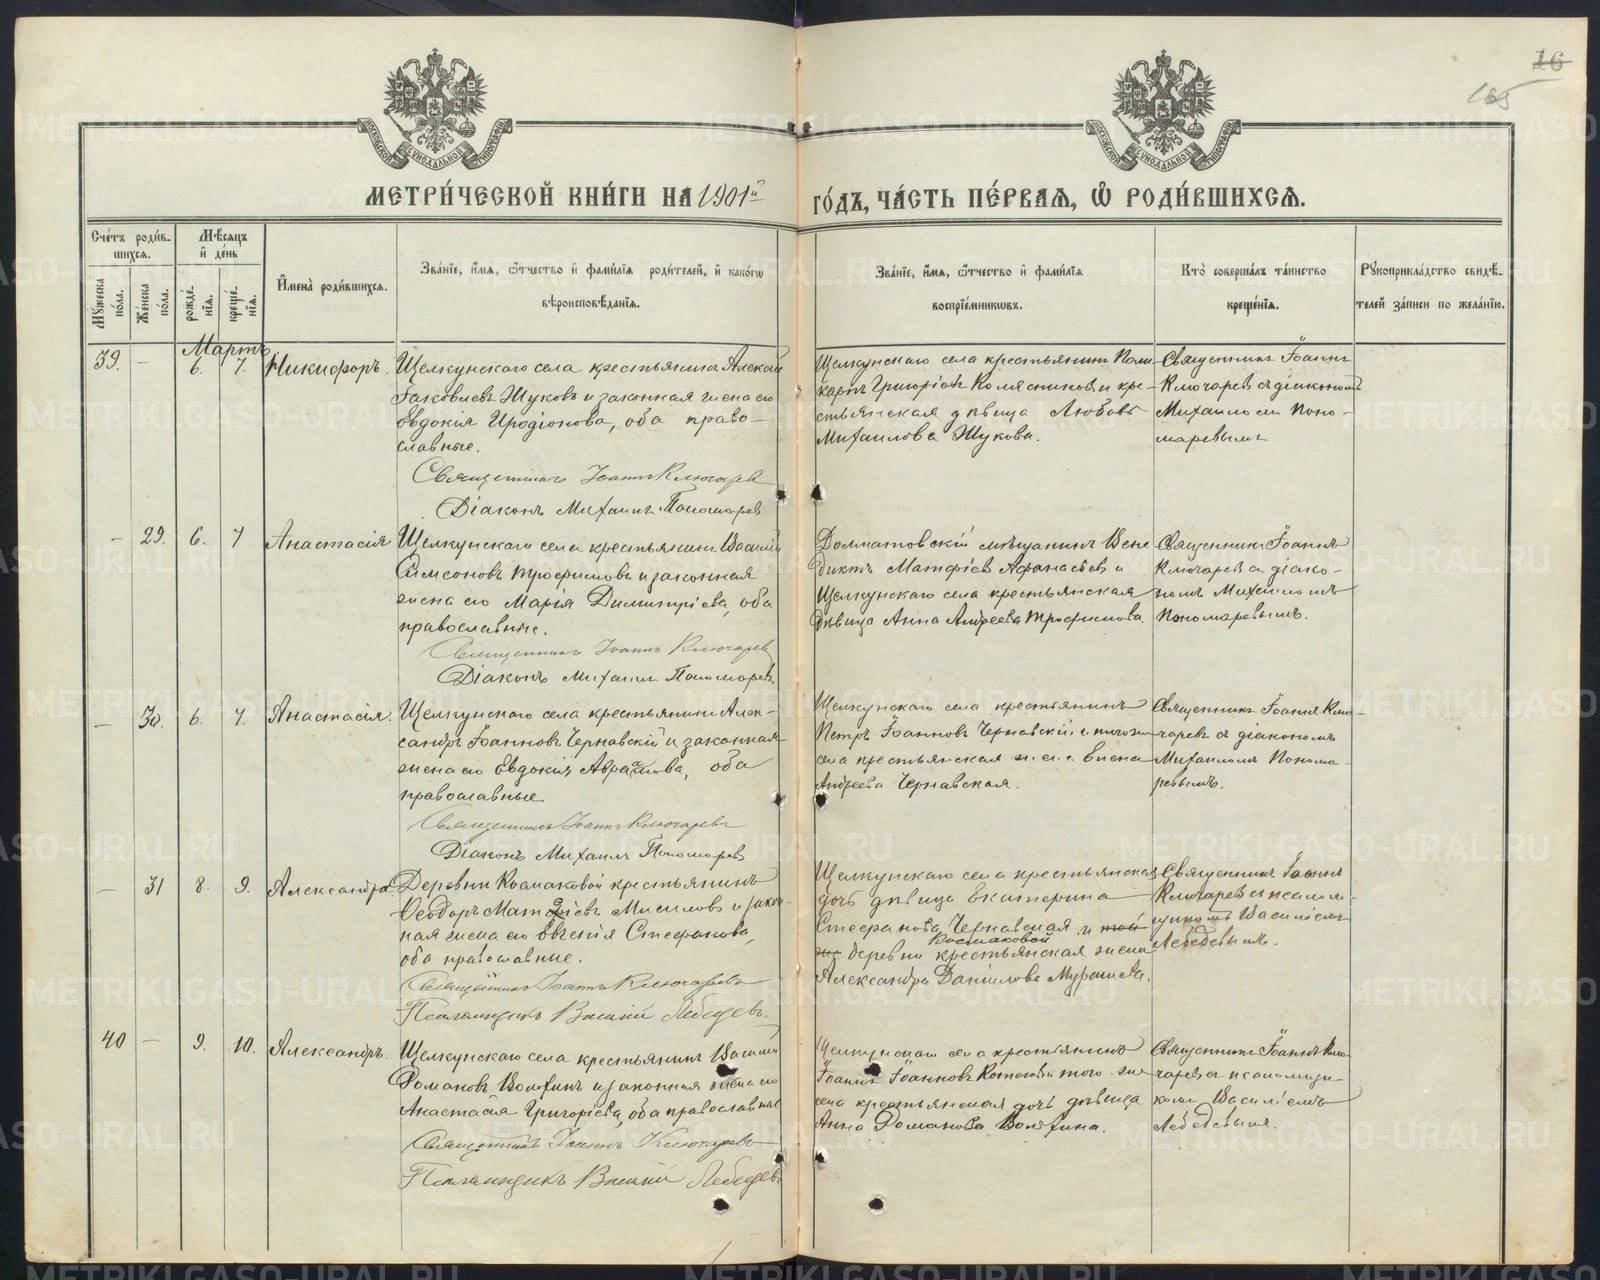 16
165
МОСКОВСКОЙ СѴНОДАЛЬНОЙ ТИПОГРАФІИ
МОСКОВСКОЙ СѴНОДАЛЬНОЙ ТИПОГРАФІИ
МЕТРИ́ЧЕСКОЙ КНИ́ГИ НА 1901й ГО́ДЪ, ЧА́СТЬ ПЕ́РВАЯ, Ѽ РОДИ́ВШИХСЯ.
Сче́тъ роди́в-
шихся.
Мѣ́сяцъ
и҆ де́нь
Мꙋ́жеска
по́ла.
Же́нска
по́ла.
рожде́-
нія.
креще́-
нія.
И҆мена̀ роди́вшихся.
Зва́нїе, и҆́мя, ѻ҆́тчество и҆ фами́лїя роди́телей, и҆ како́гѡ
вѣроисповѣ́данїя.
Зва́нїе, и҆́мя, ѻ҆́тчество и҆ фами́лїя
воспрїе́мникѡвъ.
Кто̀ соверша́лъ та́инство
креще́нїя.
Рꙋкоприкла́дство свидѣ́-
телей за́писи по жела́нїю.
Мартъ
39. — 6. 7. Никифоръ.
Щелкунскаго села крестьянинъ Алексій
Іаковлевъ Жуковъ и законная жена его
Евдокія Иродіонова, оба право-
славные.
Священникъ Іоаннъ Ключаревъ
Діаконъ Михаилъ Пономаревъ
Щелкунскаго села крестьянинъ Поли-
карпъ Григоріевъ Колясниковъ и кре-
стьянская дѣвица Любовь
Михаилова Жукова.
Священникъ Іоаннъ
Ключаревъ съ діакономъ
Михаиломъ Поно-
маревымъ
— 29. 6. 7 Анастасія
Щелкунскаго села крестьянинъ Василій
Симеоновъ Трофимовъ и законная
жена его Марія Димитріева, оба
православные.
Священникъ Іоаннъ Ключаревъ
Діаконъ Михаилъ Пономаревъ
Долматовскій мѣщанинъ Вене-
диктъ Матфіевъ Афанасьевъ и
Щелкунскаго села крестьянская
дѣвица Анна Андреева Трофимова
Священникъ Іоаннъ
Ключаревъ съ діако-
номъ Михаиломъ
Пономаревымъ.
— 30. 6. 7. Анастасія.
Щелкунскаго села крестьянинъ Алек-
сандръ Іоанновъ Чернавскій и законная
жена его Евдокія Авраамова, оба
православные.
Священникъ Іоаннъ Ключаревъ
Діаконъ Михаилъ Пономаревъ
Щелкунскаго села крестьянинъ
Петръ Іоанновъ Чернавскій и того же
села крестьянская жена Елена
Андреева Чернавская.
Священникъ Іоаннъ Клю-
чаревъ съ діакономъ
Михаиломъ Понома-
ревымъ.
— 31 8. 9. Александра
Деревни Космаковой крестьянинъ
Ѳеодоръ Матфіевъ Мисиловъ и закон-
ная жена его Евгенія Стефанова,
оба православные.
Священникъ Іоаннъ Ключаревъ
Псаломщикъ Василій Лебедевъ.
Щелкунскаго села крестьянская
дочь дѣвица Екатерина
Стефанова Чернавская и той
же деревни Космаковой крестьянская жена
Александра Даніилова Мурашева.
Священникъ Іоаннъ
Ключаревъ съ псалом-
щикомъ Василіемъ
Лебедевымъ.
40 — 9. 10. Александръ.
Щелкунскаго села крестьянинъ Василій
Романовъ Волхинъ и законная жена его
Анастасія Григоріева, оба православные
Священникъ Іоаннъ Ключаревъ
Псаломщикъ Василій Лебедевъ.
Щелкунскаго села крестьянинъ
Іоаннъ Іоанновъ того же
села крестьянская дочь дѣвица
Анна Романова Волхина.
Священникъ Іоаннъ Клю-
чаревъ съ псаломщи-
комъ Василіемъ
Лебедевымъ.
METRIKI.GASO-URAL.RU